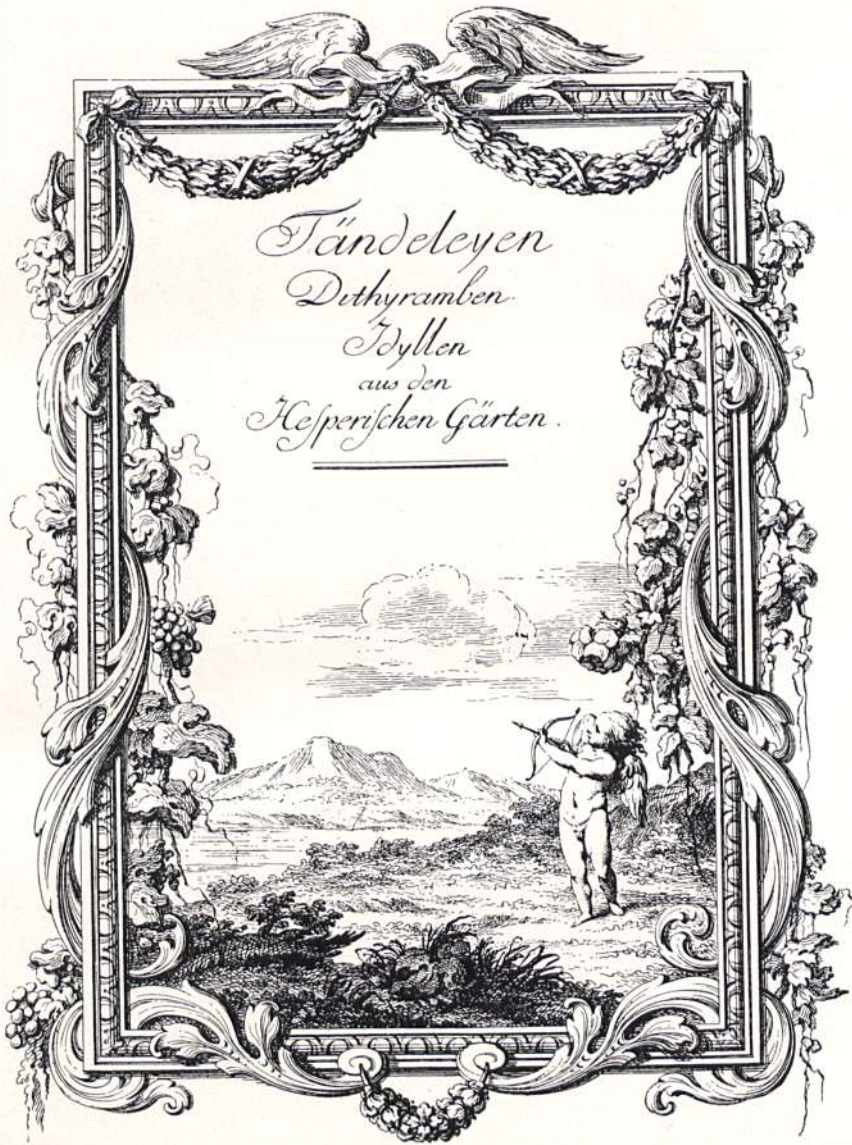 Tändeleyen
Dithyramben.
Idyllen
aus den
Heſperiſchen Gärten.